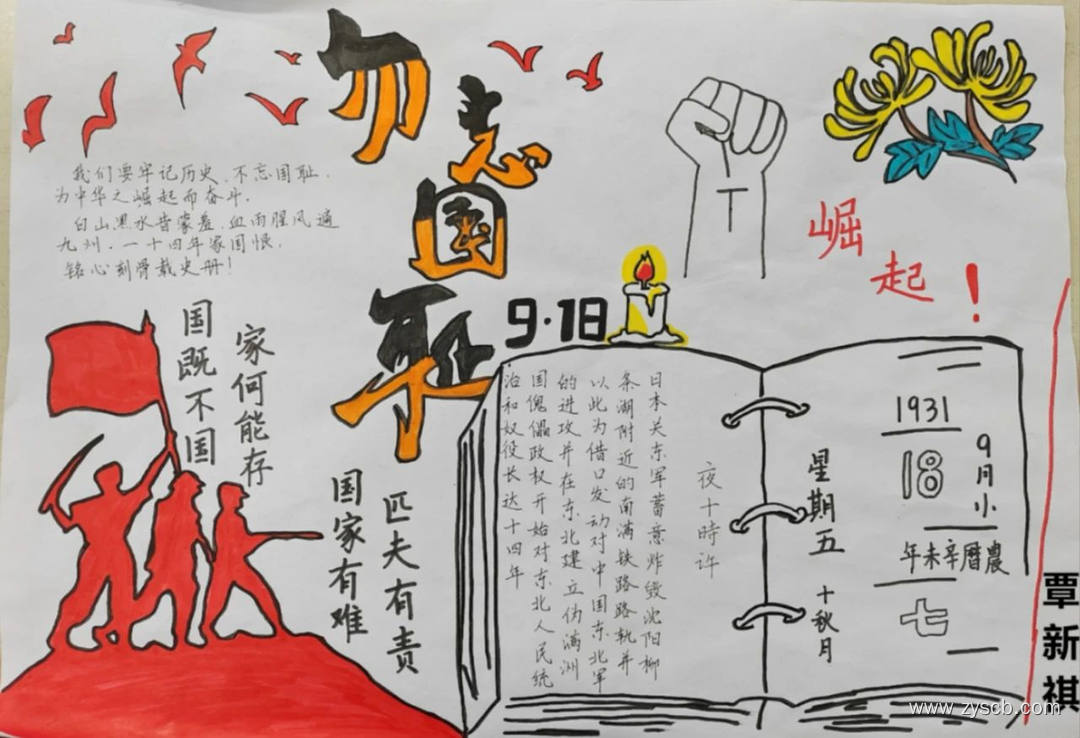 勿忘国耻
我们要牢记历史、不忘国耻、
为中华之崛起而奋斗.
白山黑水昔蒙羞,血雨腥风遍
九州.一十四年家国恨,
铭心刻骨载史册!
家何能存
国既不国
匹夫有责
国家有难
崛
起!
9·18
夜十時许
日本关东军蓄意炸毁沈阳柳
条湖附近的南满铁路路轨并
以此为借口发动对中国东北军
的进攻并在东北建立伪满洲
国傀儡政权开始对东北人民统
治和奴役长达十四年
1931
9月小
18
星期五
年未辛曆農
七
十秋月
一
覃新祺
www.zyscb.com